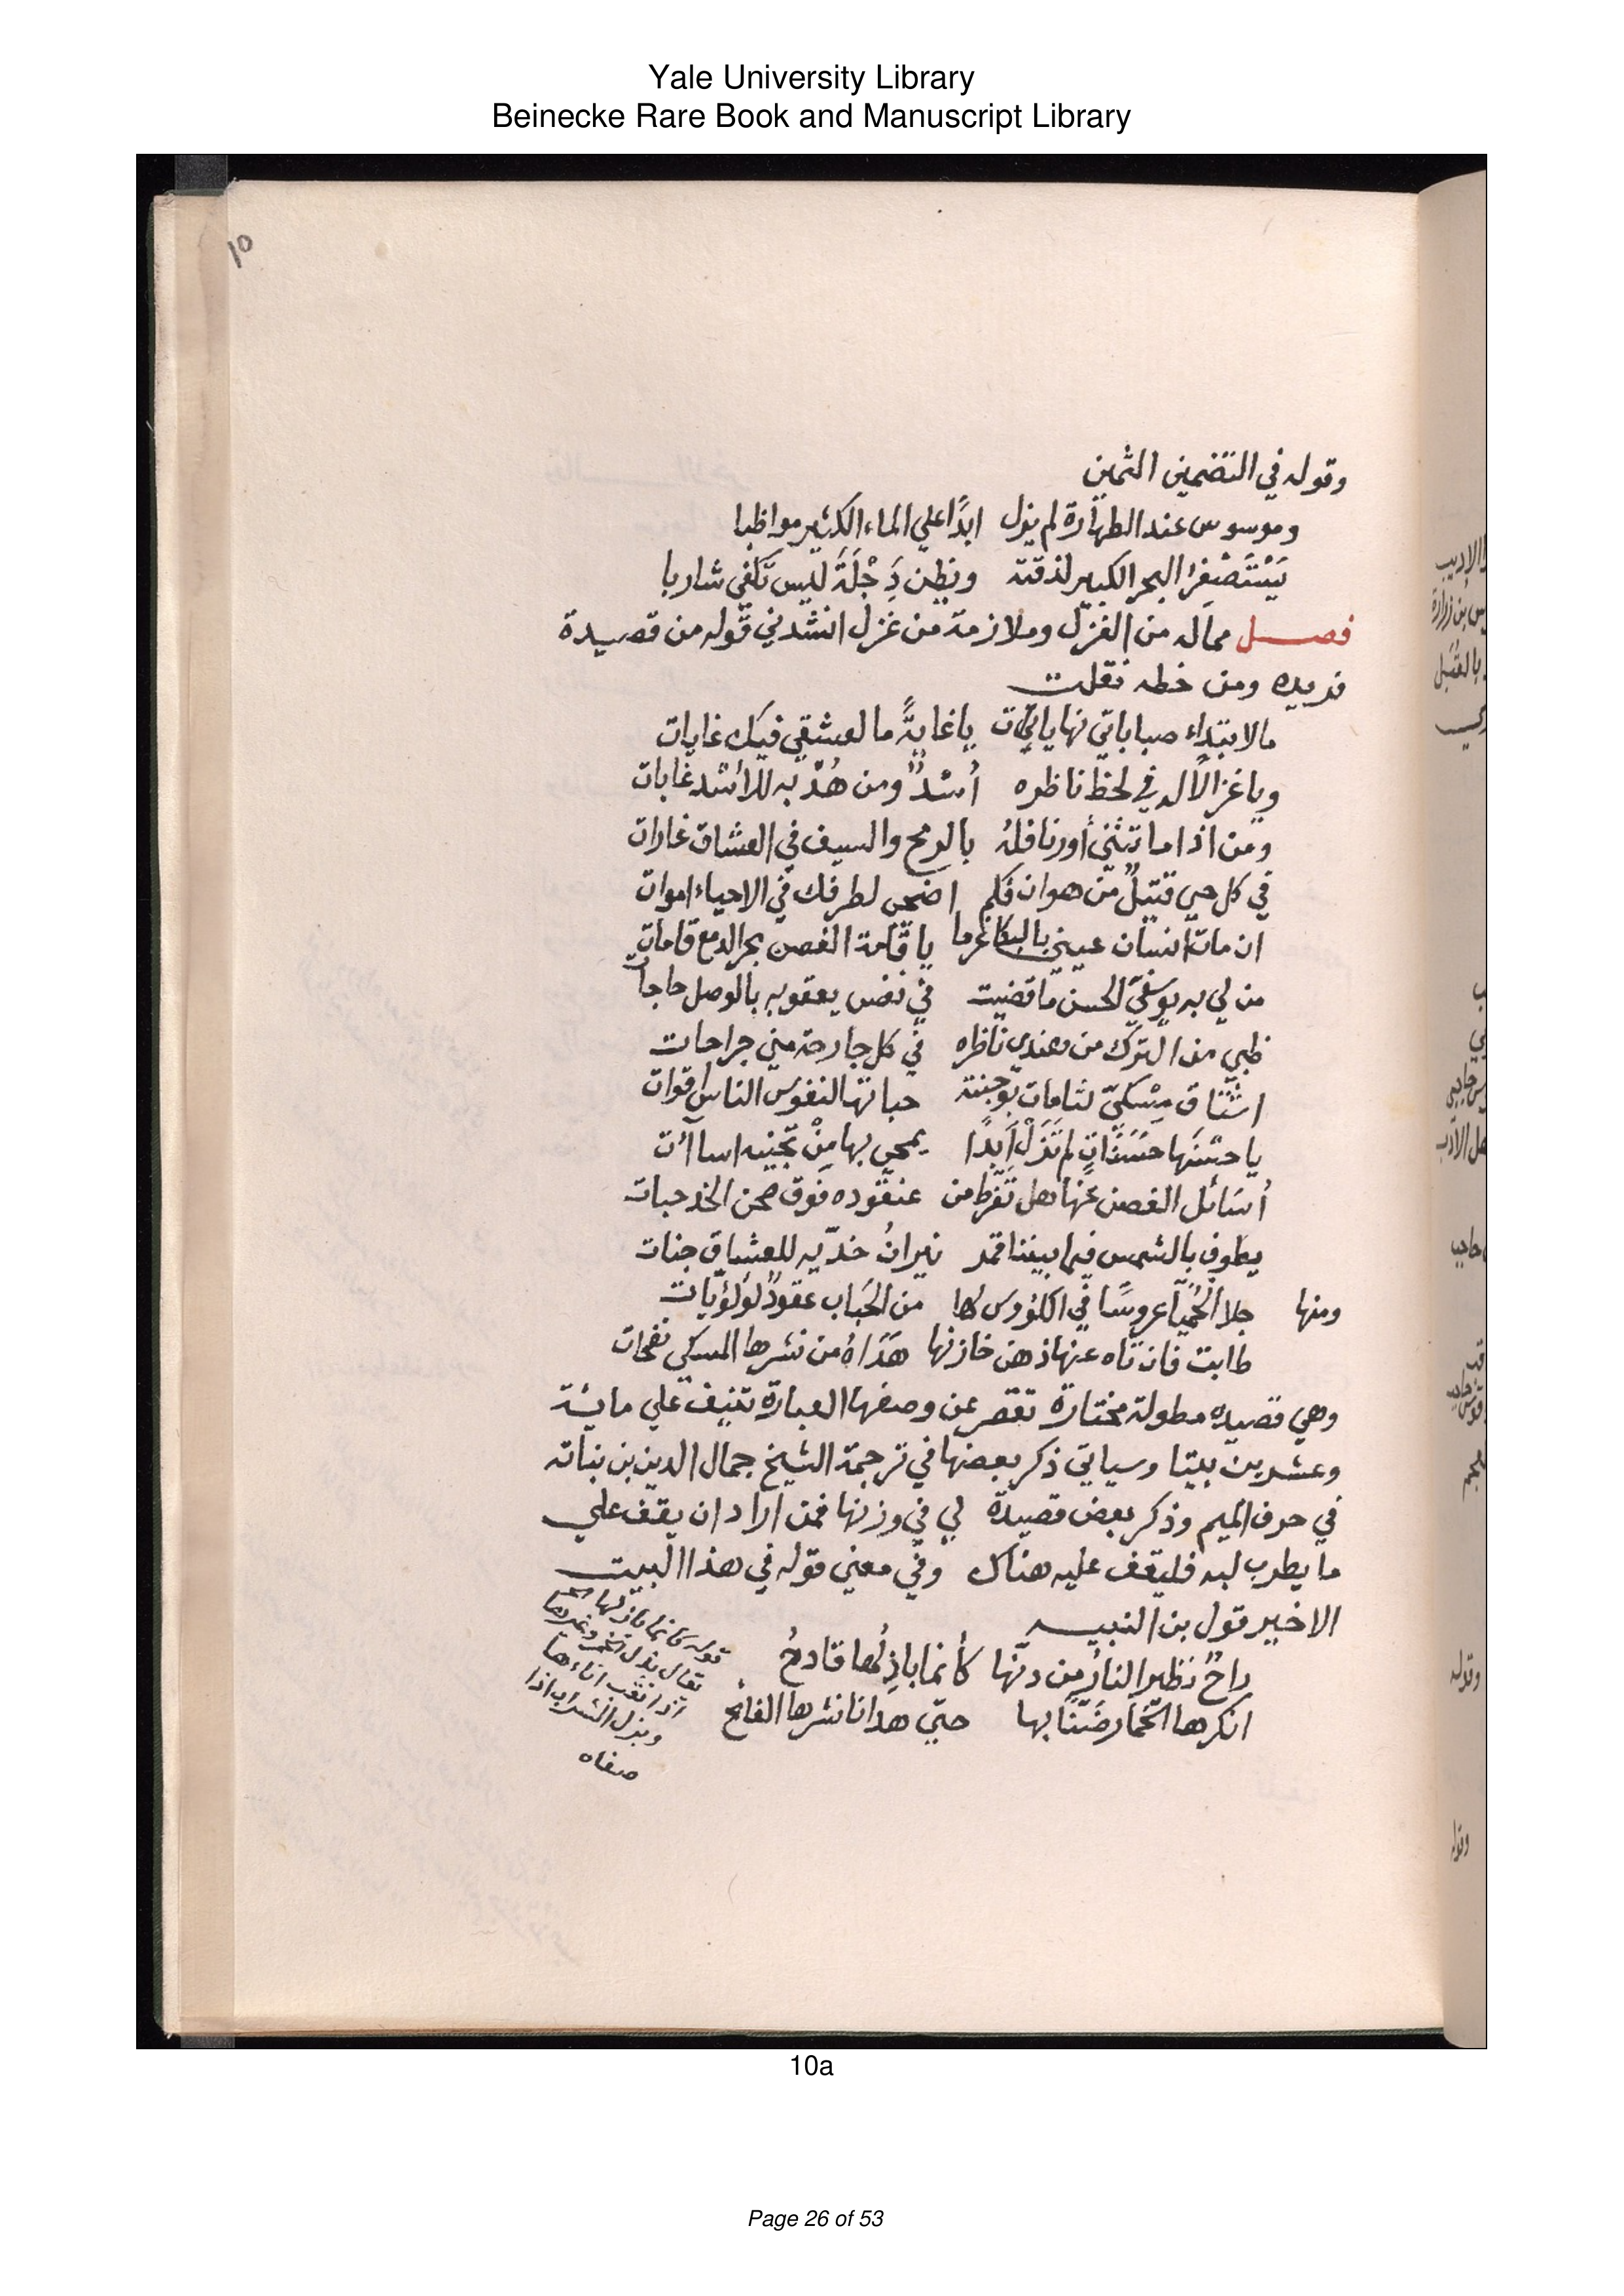 Yale University Library
Beinecke Rare Book and Manuscript Library
١٥
وقوله في التضمين الثمين
وموسوس عند الطهارة لم يزل ابدًا علي الماء الكثير مواظبا
يَسْتَصْغِرُ البحر الكبير لذقنه ويظن دِجْلَةَ ليس تكفي شاربا
فصل مماله من الغزل وملازمة من غزل انشدني قوله من قصيدة
فريده ومن خطه نقلت
مالابتداء صباباتي نهايات يا غايةً ما لعشقي فيك غايات
ويا غزالًا له في لحظ ناظره أسدٌ ومن هُدْبه للاسد غابات
ومن اذا ما تثني أورنا فله بالرمح والسيف في العشاق غارات
في كل حي قتيلٌ من هواك فكم اضحى لطرفك في الاحياء اموات
ان مات انسان عيني بالبكا غرما يا قامة الغصن بحر الدمع قامات
من لي به يوسفيّ الحسن ما قضيت في نفس يعقوبه بالوصل حاجات
ظبي من الترك من هندي ناظره في كل جارحة مني جراحات
اشتاق مِسْكيّ شامات بوجنته حباتها لنفوس الناس اقوات
يا حسْنَها حَسَنَاتٍ لم تَزَلْ أبدًا يمحى بها مِنْ تجنيه اساآت
أسَائل الغصن عنها هل تفرّط من عنقوده فوق صحن الخد حبات
يطوف بالشمس فيما بيننا قمر نيرانُ خدّيه للعشاق جنات
ومنها جلا الحُميّا عروسًا في الكؤوس لها من الحَباب عقودٌ لؤلؤيّات
طابت فان تاه عنها ذهن خازنها هَدَاهُ من نشرها المسكي نفحات
وهي قصيده مطولة مختارة تقصر عن وصفها العبارة تنيف علي مائة
وعشرين بيتا وسياتي ذكر بعضها في ترجمة الشيخ جمال الدين بن نباته
في حرف الميم وذكر بعض قصيدة لي في وزنها فمن اراد ان يقف علي
ما يطرب لبه فليقف عليه هناك وفي معني قوله في هذا البيت
الاخير قول بن النبيه
راحٌ نظير النار من دنّها كأنما باذِلُها قادحُ
انكرها الخمّار ضَنّا بها حتيّ هدانا نشرها الفائح
قوله كانما بازلها
يقال بزل الخمر وغيرها
اذا ثقب اناءها
وبزل الشراب اذا
صفاه
10a
Page 26 of 53